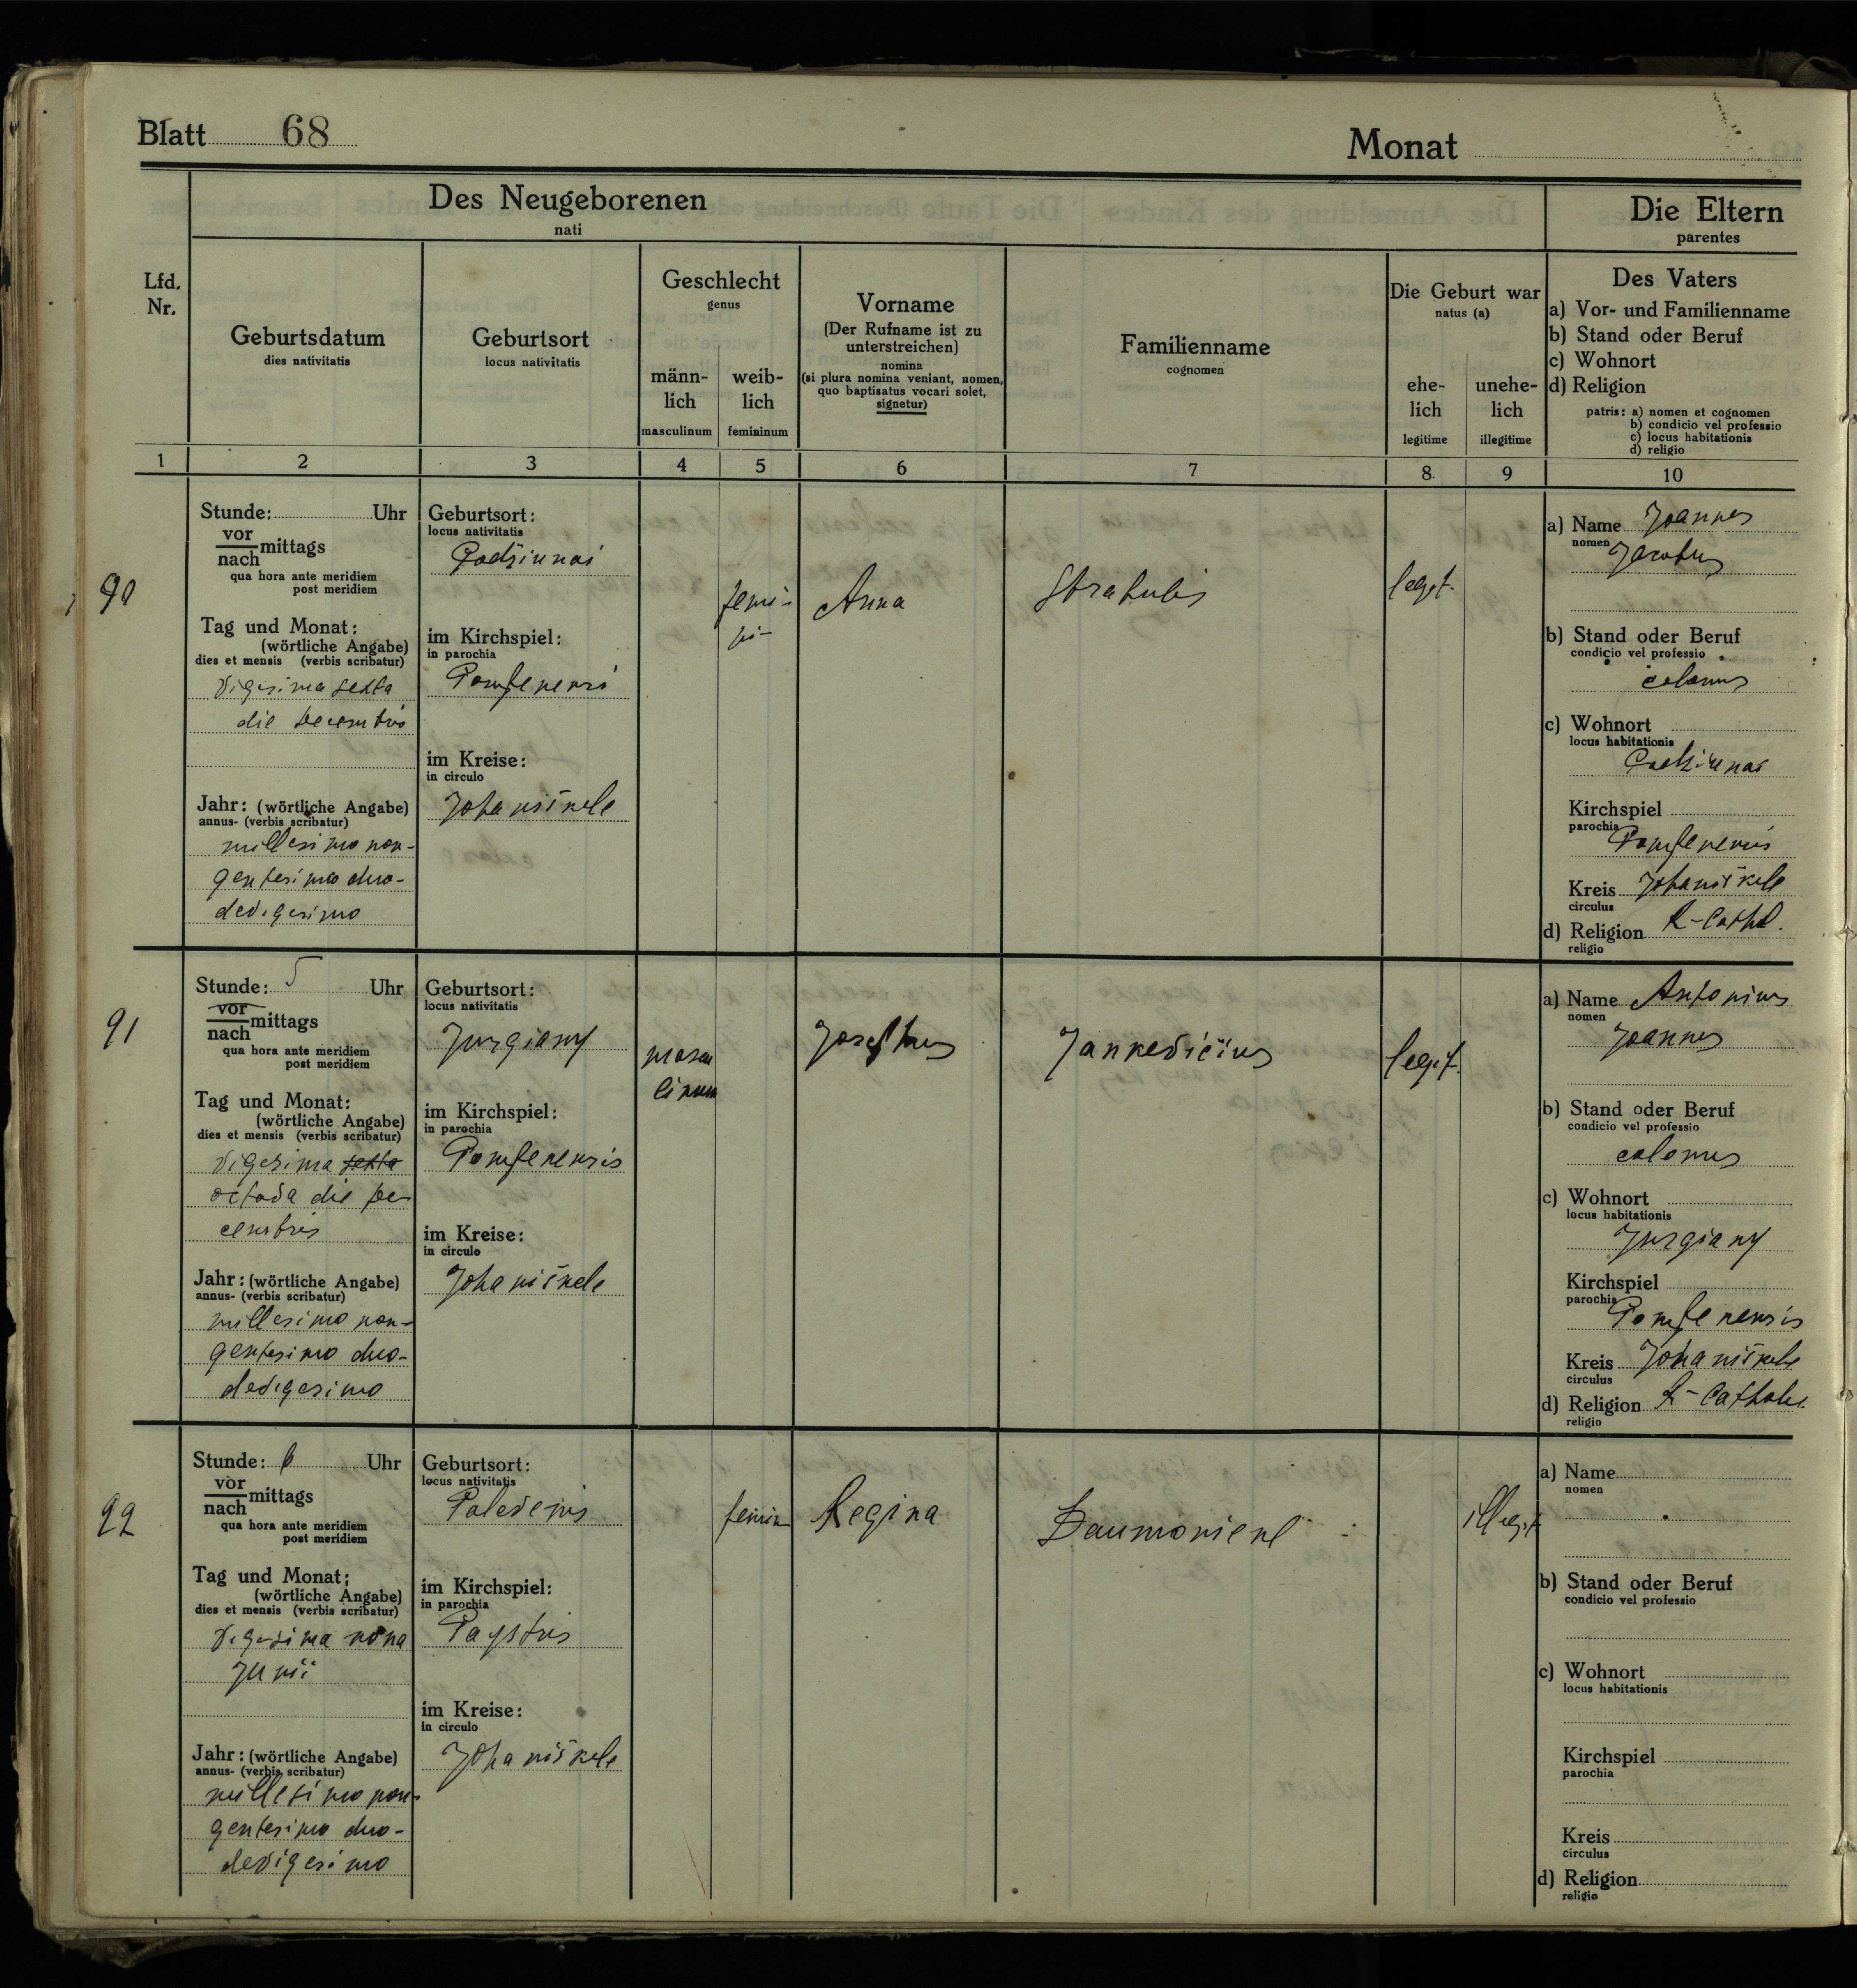 Blatt 68
Monat
Des Neugeborenen
nati
Die Eltern
parentes
Lfd.
Nr.
Geburtsdatum
dies nativitatis
Geburtsort
locus nativitatis
Geschlecht
genus
männ-
lich
masculinum
weib-
lich
femininum
Vorname
(Der Rufname ist zu
unterstreichen)
nomina
(si plura nomina veniant, nomen,
quo baptisatus vocari solet,
signetur)
Familienname
cognomen
Die Geburt war
natus (a)
ehe-
lich
legitime
unehe-
lich
illegitime
Des Vaters
a) Vor- und Familienname
b) Stand oder Beruf
c) Wohnort
d) Religion
patris: a) nomen et cognomen
b) condicio vel professio
c) locus habitationis
d) religio
1 2 3 4 5 6 7 8 9 10
90
Stunde: Uhr
vor
nach mittags
qua hora ante meridiem
post meridiem
Tag und Monat:
(wörtliche Angabe)
dies et mensis (verbis scribatur)
vigesima sexta
die decembris
Jahr: (wörtliche Angabe)
annus- (verbis scribatur)
millesimo non-
gentesimo duo-
devigesimo
Geburtsort:
locus nativitatis
Podžiunai
im Kirchspiel:
in parochia
im Kreise:
in circulo
Johaniškele
femi-
ni-
Anna
legit.
a) Name Joannes
nomen
b) Stand oder Beruf
condicio vel professio
colonus
c) Wohnort
locus habitationis
Podžiunai
Kirchspiel
parochia
Kreis Johaniškele
circulus
d) Religion R-Cathol.
religio
91
Stunde: 5 Uhr
vor
nach mittags
qua hora ante meridiem
post meridiem
Tag und Monat:
(wörtliche Angabe)
dies et mensis (verbis scribatur)
vigesima sexta
octava die de
cembris
Jahr: (wörtliche Angabe)
annus- (verbis scribatur)
millesimo non-
gentesimo duo-
devigesimo
Geburtsort:
locus nativitatis
Jurgiany
im Kirchspiel:
in parochia
im Kreise:
in circulo
Johaniškele
mascu
linum
Josephus
Jankevičius
legit.
a) Name Antonius
nomen
Joannes
b) Stand oder Beruf
condicio vel professio
colonus
c) Wohnort
locus habitationis
Jurgiany
Kirchspiel
parochia
Kreis Johaniškele
circulus
d) Religion R-Cathole.
religio
92
Stunde: 6 Uhr
vor
nach mittags
qua hora ante meridiem
post meridiem
Tag und Monat:
(wörtliche Angabe)
dies et mensis (verbis scribatur)
vigesima nona
Junii
Jahr: (wörtliche Angabe)
annus- (verbis scribatur)
millesimo non-
gentesimo duo-
devigesimo
Geburtsort:
locus nativitatis
im Kirchspiel:
in parochia
im Kreise:
in circulo
Johaniškele
femin
Regina
illegit
a) Name
nomen
b) Stand oder Beruf
condicio vel professio
c) Wohnort
locus habitationis
Kirchspiel
parochia
Kreis
circulus
d) Religion
religio